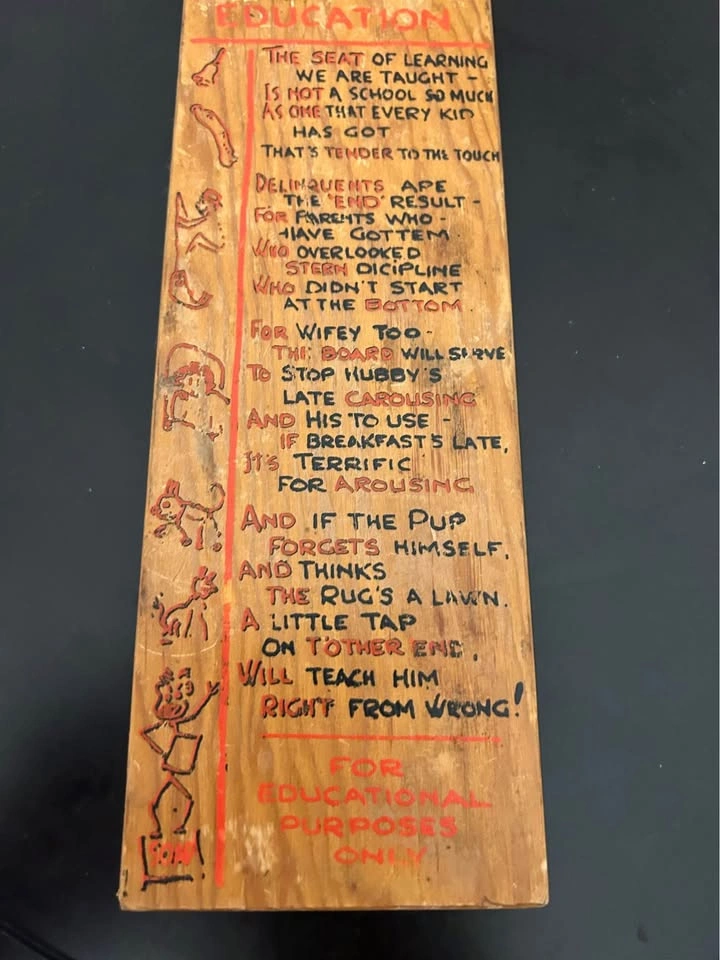 EDUCATION
THE SEAT OF LEARNING
WE ARE TAUGHT -
IS NOT A SCHOOL SO MUCH
AS ONE THAT EVERY KID
HAS GOT
THAT'S TENDER TO THE TOUCH
DELINQUENTS ARE
THE 'END' RESULT -
FOR PARENTS WHO -
HAVE GOTTEM
WHO OVERLOOKED
STERN DICIPLINE
WHO DIDN'T START
AT THE BOTTOM
FOR WIFEY TOO -
THE BOARD WILL SERVE
TO STOP HUBBY'S
LATE CAROUSING
AND HIS TO USE -
IF BREAKFAST'S LATE,
IT'S TERRIFIC
FOR AROUSING
AND IF THE PUP
FORGETS HIMSELF,
AND THINKS
THE RUG'S A LAWN.
A LITTLE TAP
ON T'OTHER END,
WILL TEACH HIM
RIGHT FROM WRONG!
FOR
EDUCATIONAL
PURPOSES
ONLY